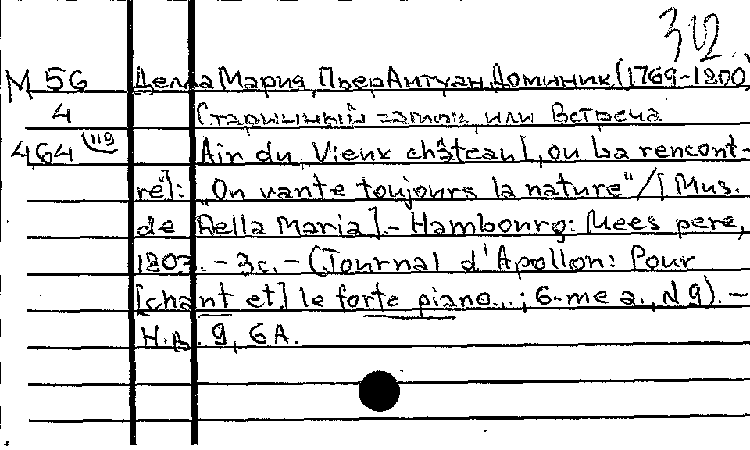 312.
М 56 Делла Мария, Пьер Антуан Доминик (1769-1800)
4 Старинный замок, или Встреча
464 (119 Air du Vieux château [, ou La rencont-
re]: "On vante toujours la nature"/[Mus.
de Della Maria].- Hambourg: Mees père,
1803.- 3с.- (Journal d'Apollon: Pour
[chant et] le forte piano...; 6-me a., N 9).-
Н.д. 9, 6A.